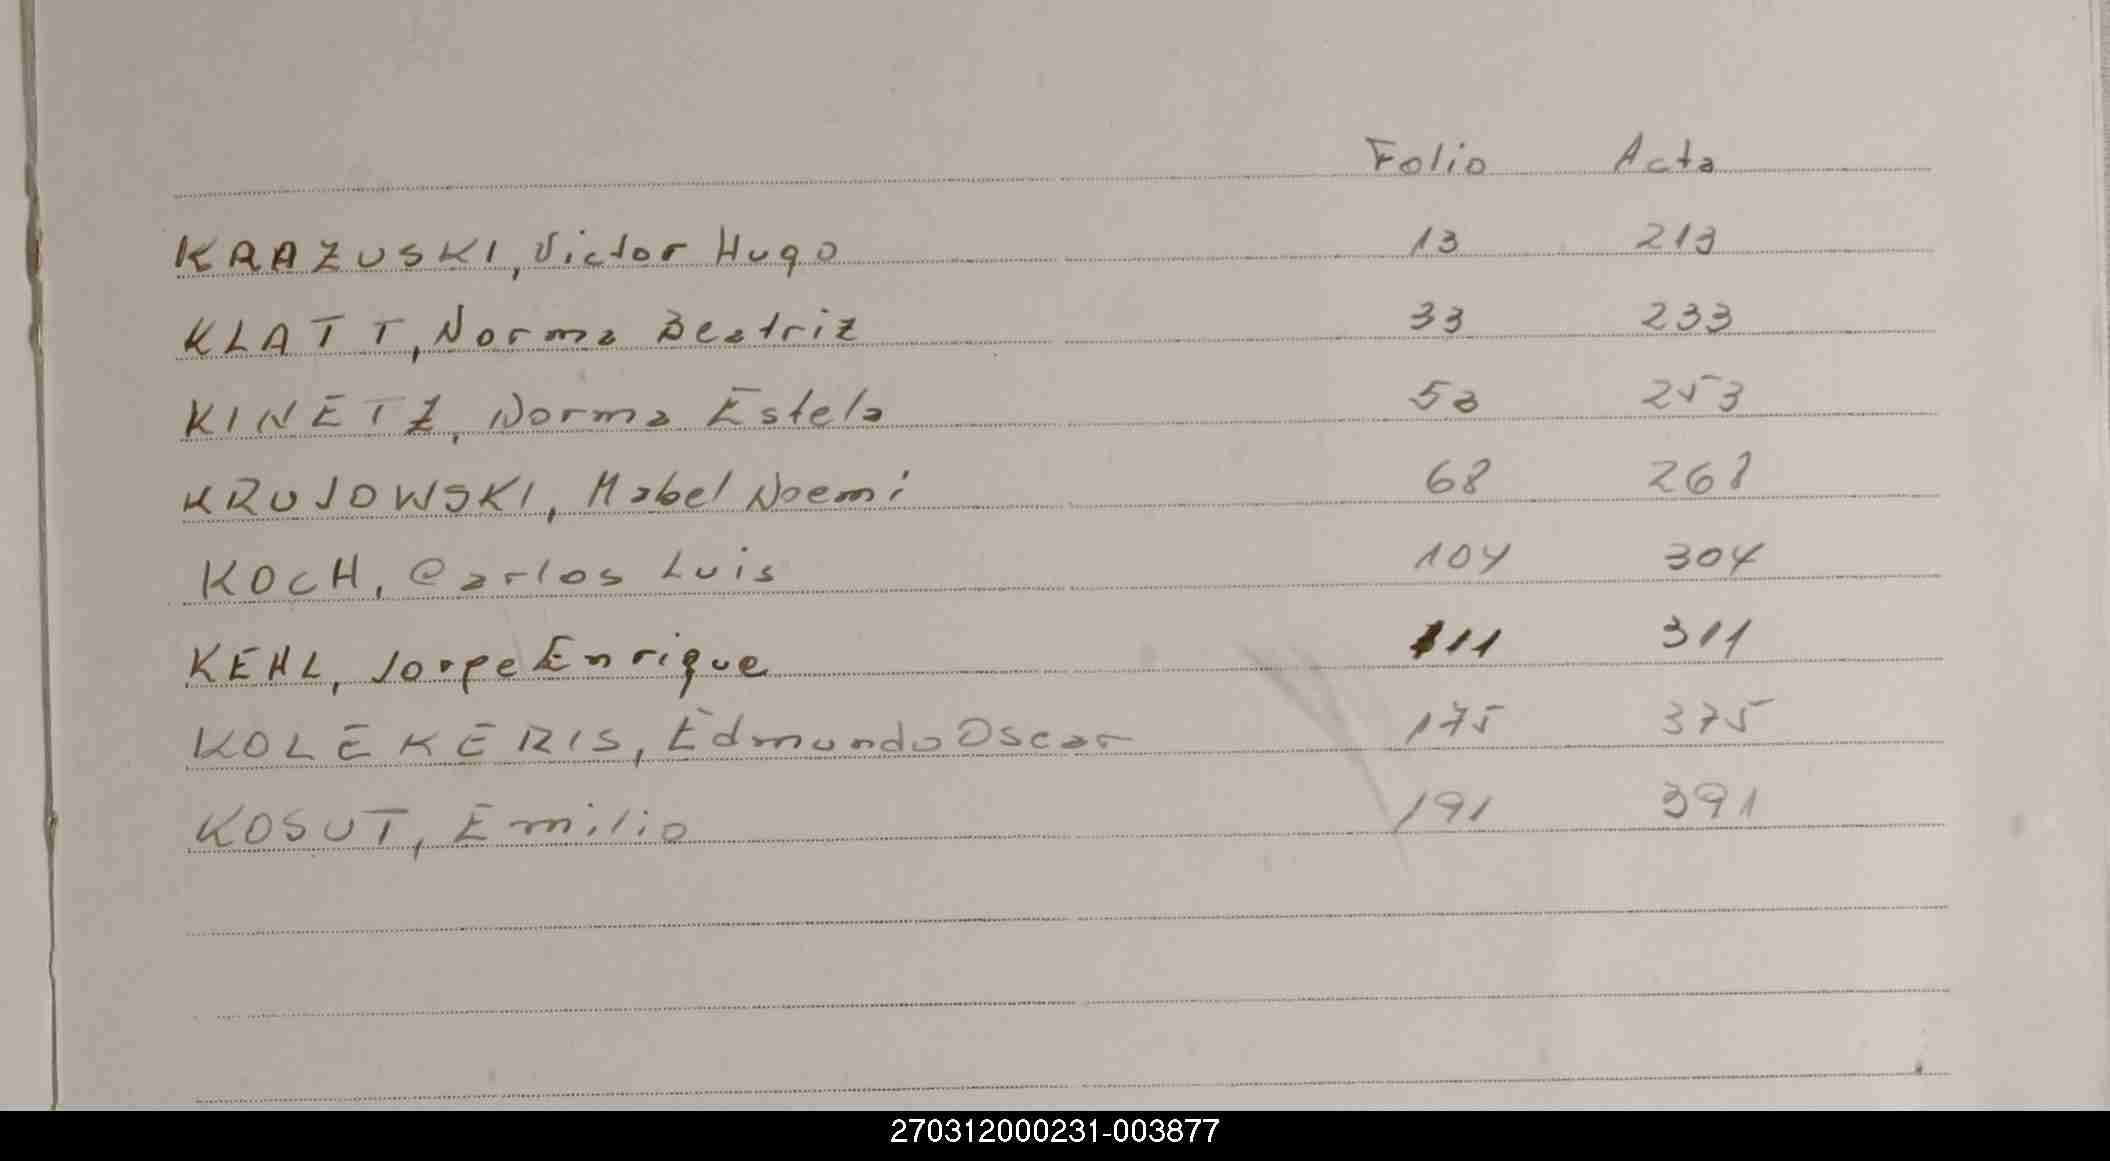 Folio Acta
KRAZUSKI, Victor Hugo 13 213
KLATT, Norma Beatriz 33 233
KINETZ, Norma Estela 53 253
KRUJOWSKI, Mabel Noemi 68 268
KOCH, Carlos Luis 104 304
KEHL, Jorge Enrique 111 311
KOLEKERIS, Edmundo Oscar 175 375
KOSUT, Emilio 191 391
270312000231-003877